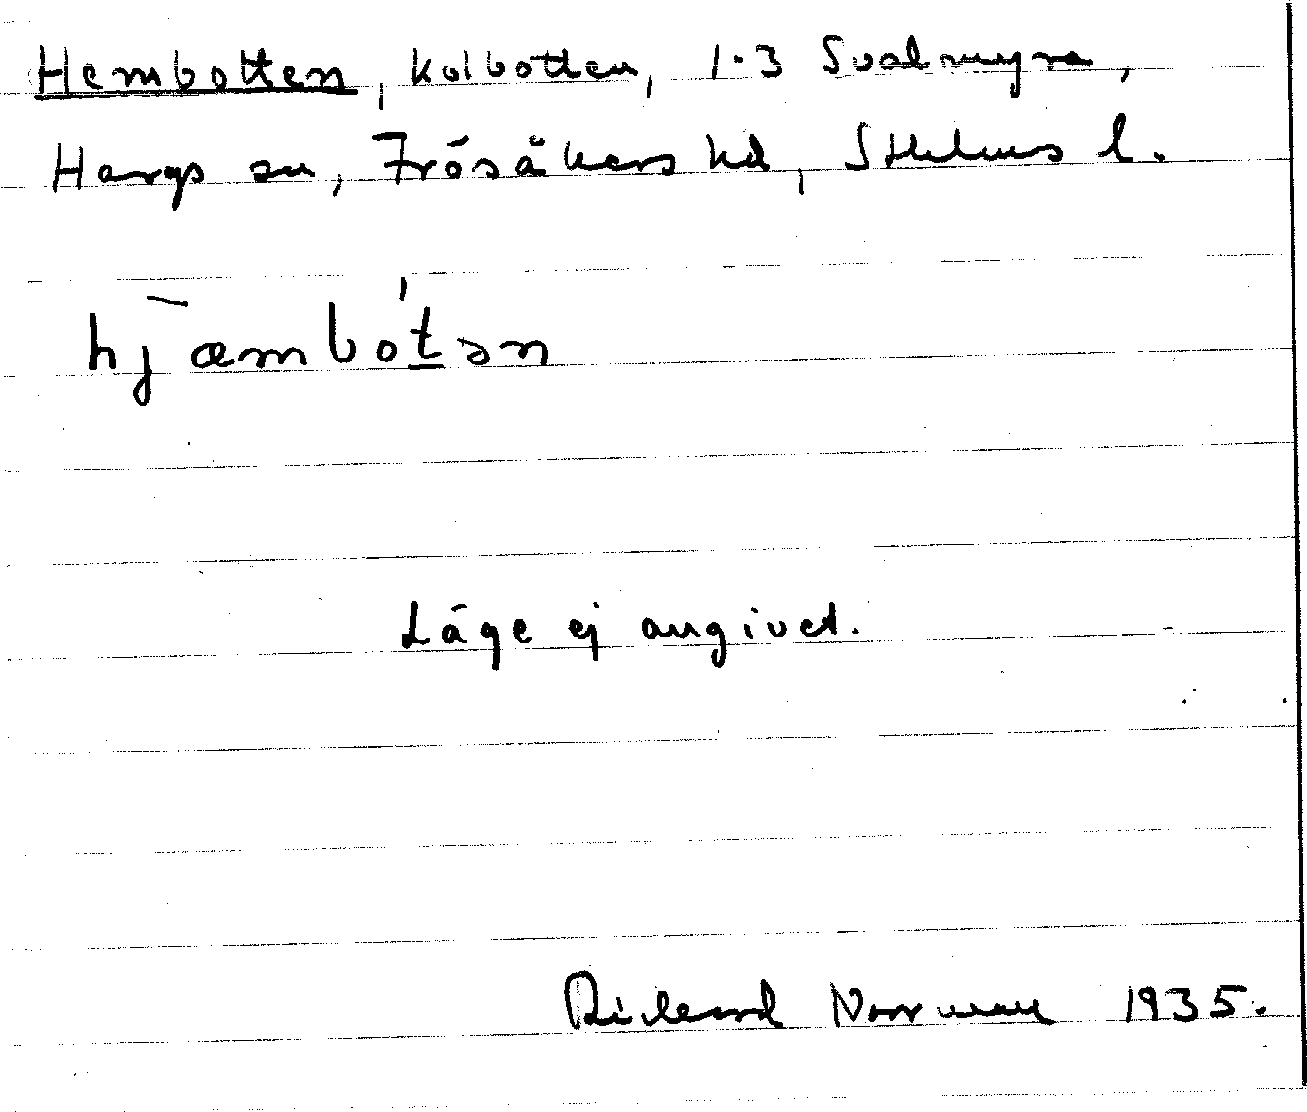 Hembotten, kolbotten, 1-3 Svalmyra,
Hargs sn, Frösåkers hd, Sthlms l.
hjæmbótən
Läge ej angivet.
Rickard Norrman 1935.